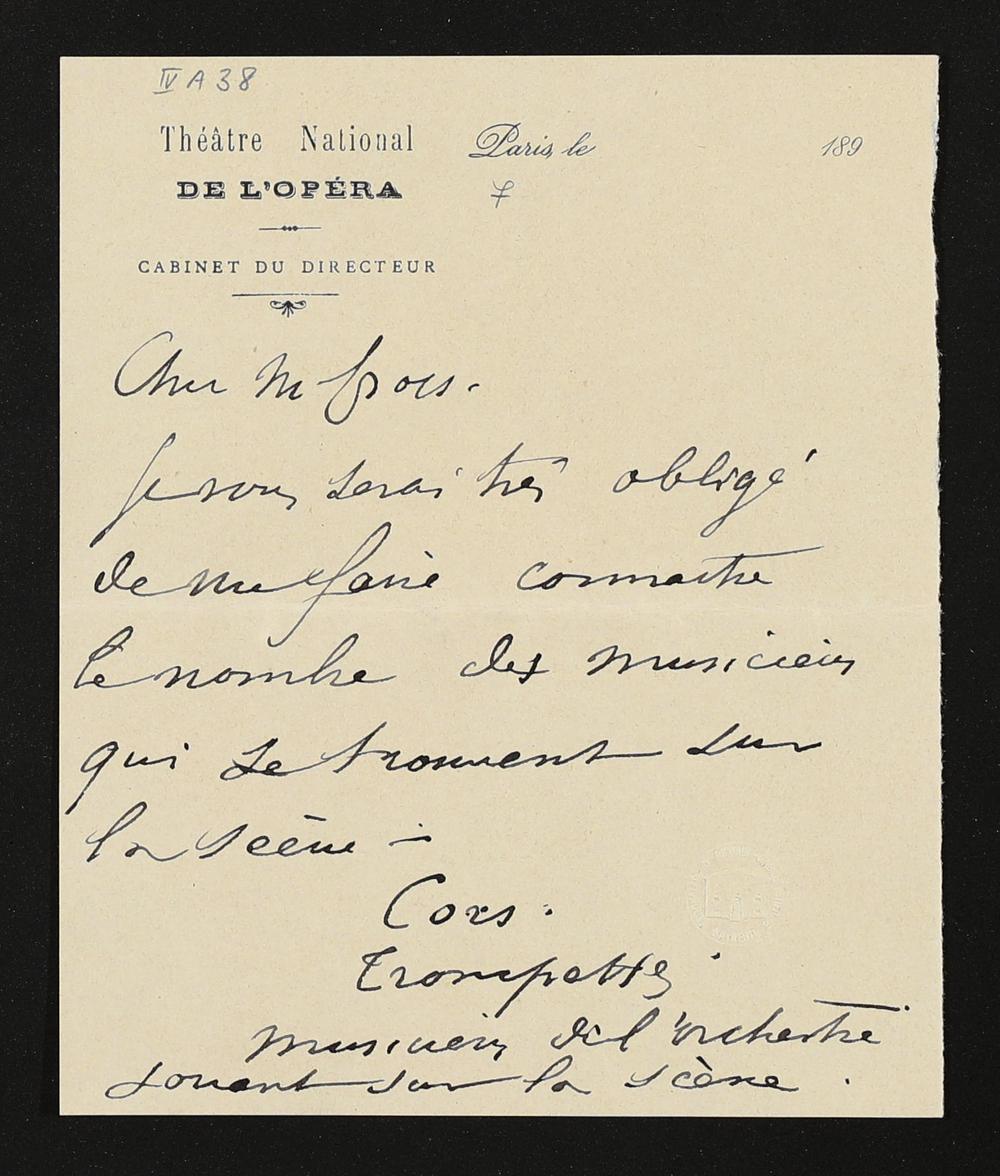 IV A 38
Théâtre National
DE L'OPÉRA
CABINET DU DIRECTEUR
Paris, le 189
7
Cher M Gross.
Je vous serai très obligé
de me faire connaitre
le nombre des musiciens
qui se trouvent sur
la scène :
Cors :
Trompettes :
musiciens de l'orchestre
jouant sur la scène .